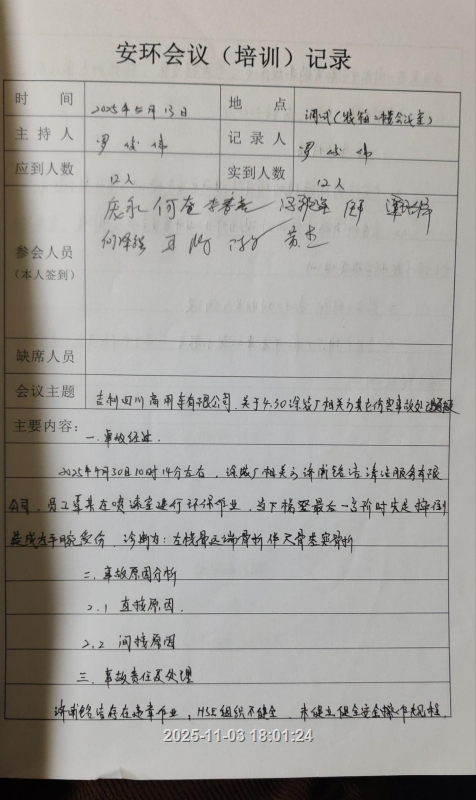 安环会议（培训）记录
时间 2025年5月13日 地点 调试(转箱二楼会议室)
主持人 罗 伟 记录人 罗 伟
应到人数 12人 实到人数 12人
参会人员 庞永 何奎
(本人签到) 黄杰
缺席人员
会议主题 吉利四川商用车有限公司.关于4.30涂装厂相关方其它伤害事故处理
主要内容：
一.事故经过.
2025年4月30日10时14分左右，涂装厂相关方 洁清洁服务有限
公司，员工 某在喷漆室进行环保作业，当下楼至最后一台阶时失足摔倒
造成左手腕受伤，诊断为：左桡骨远端骨折伴尺骨茎突骨折
二.事故原因分析
2.1 直接原因.
2.2 间接原因
三.事故责任及处理
洁存在违章作业，HSE组织不健全.未建立健全安全操作规程.
2025-11-03 18:01:24